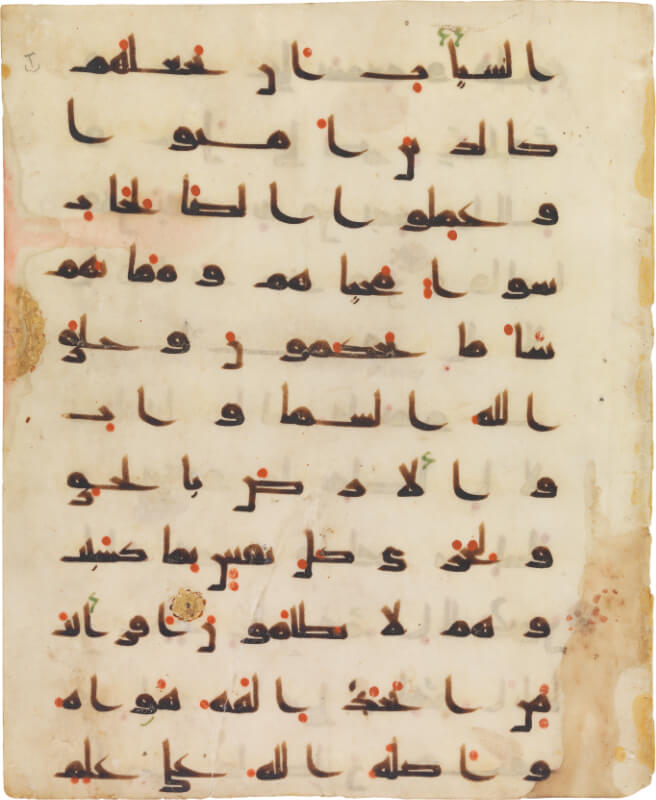 السيات ان نجعلهم
كالذين امنوا
وعملوا الصالحات
سوا محياهم ومماتهم
سا ما يحكمون وخلق
الله السماوات
والارض بالحق
ولتجزى كل نفس بما كسبت
وهم لا يظلمون افرايت
من اتخذ الهه هواه
واضله الله على علم